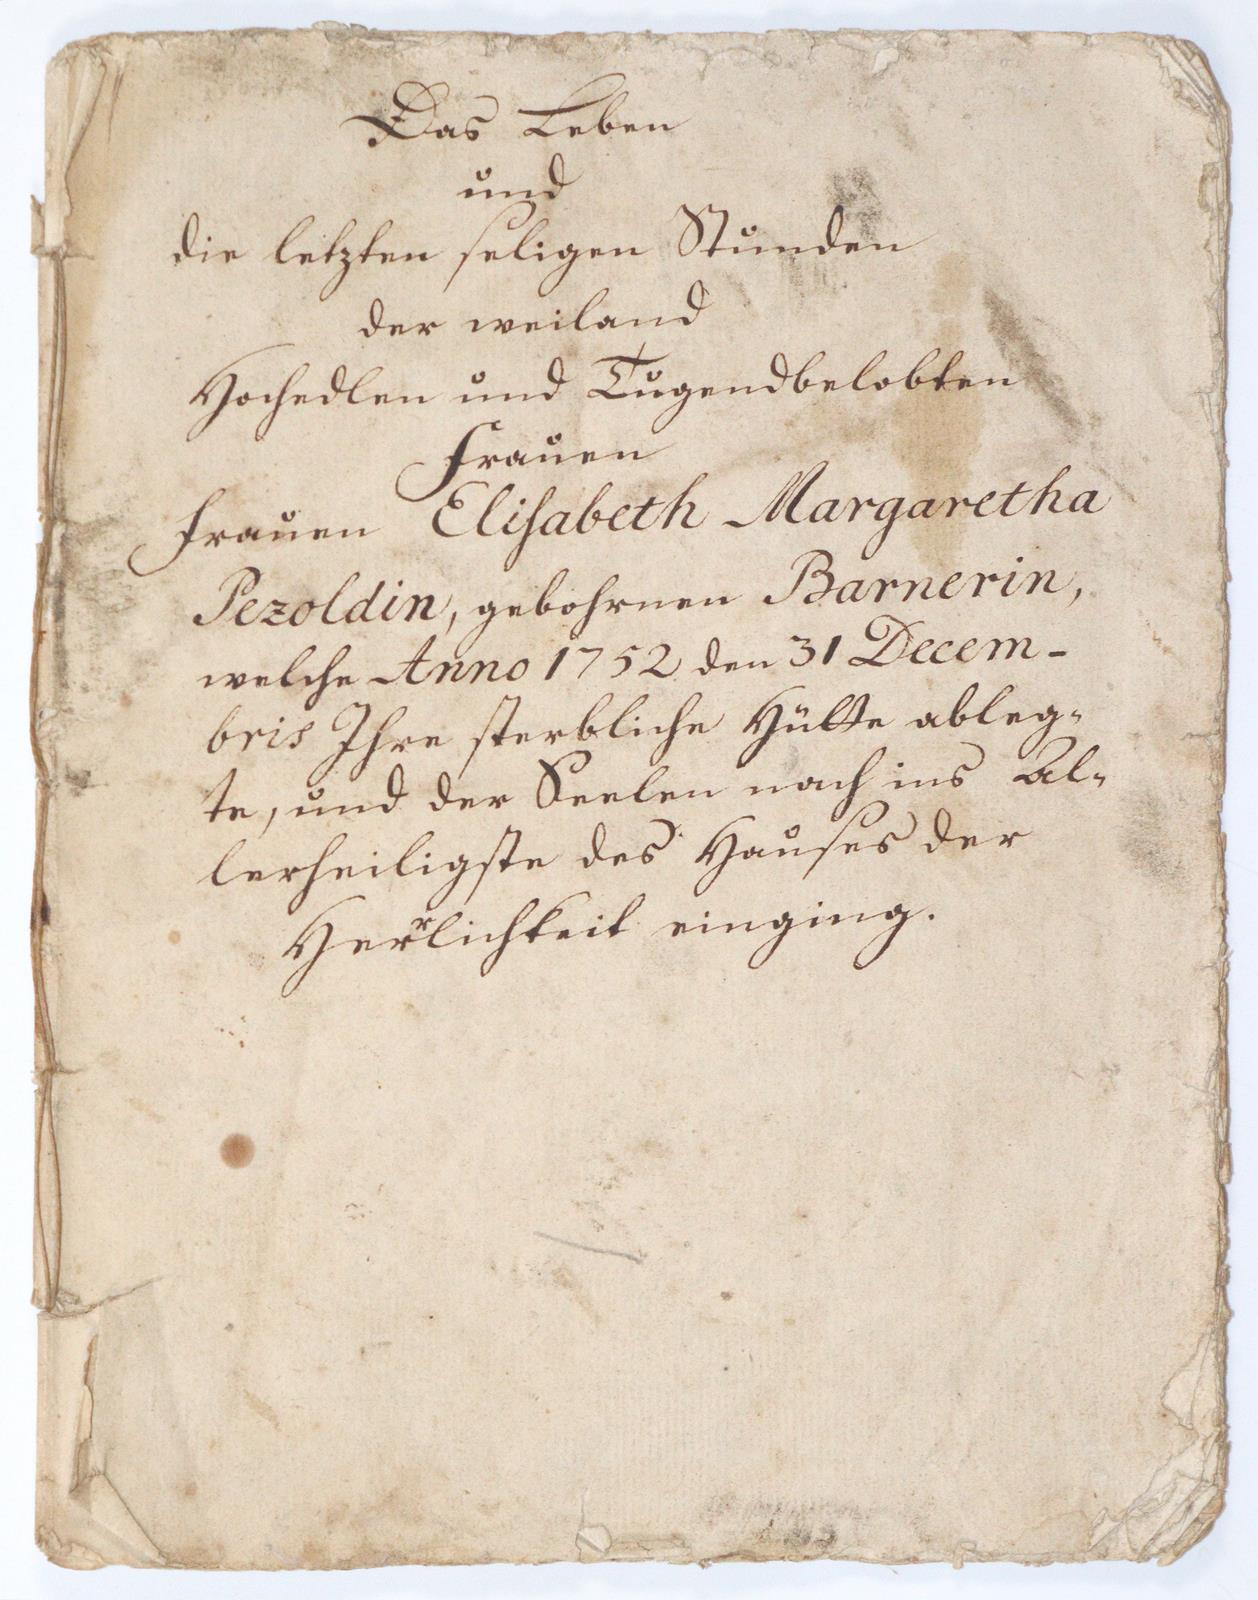 Das Leben
und
die letzten seligen Stunden
der weiland
Hochedlen und Tugendbelobten
Frauen
Frauen Elisabeth Margaretha
Pezoldin, gebohrnen Barnerin,
welche Anno 1752 den 31 Decem-
bris Ihre sterbliche Hütte ableg-
te, und der Seelen nach ins Al-
lerheiligste des Hauses der
Herrlichkeit einging.